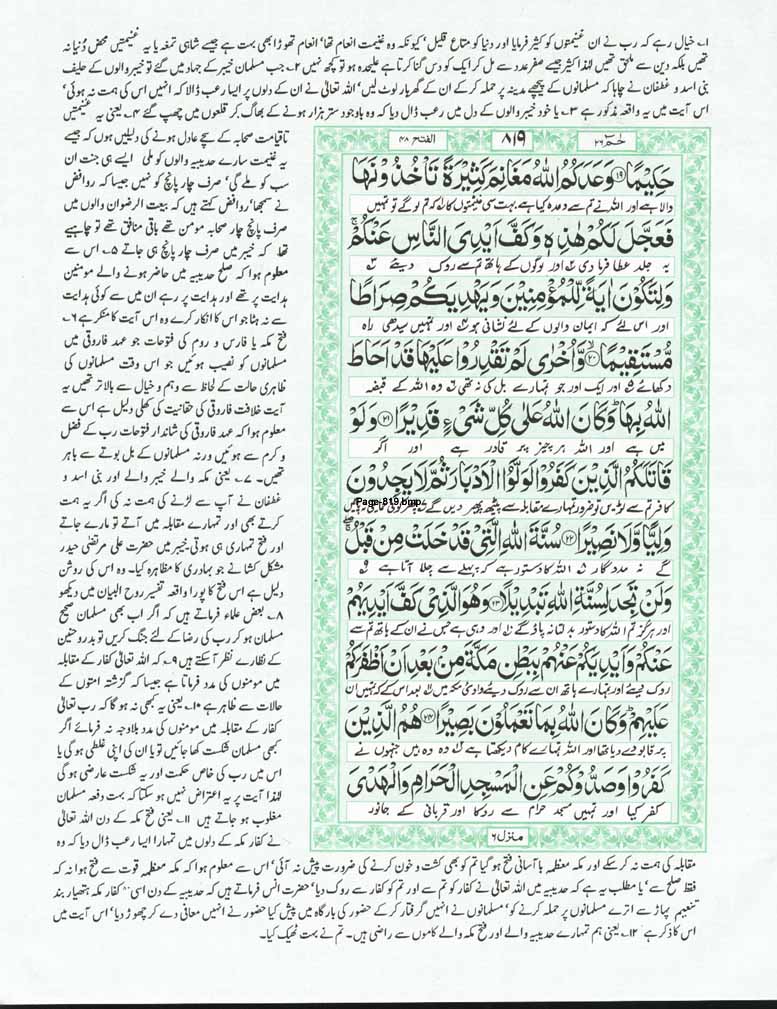 ۱۔ خیال رہے کہ رب نے ان غنیمتوں کو کثیر فرمایا اور دنیا کو متاع قلیل' کیونکہ وہ غنیمت انعام تھا' انعام تھوڑا بھی بہت ہے جیسے شاہی تمغہ یا یہ غنیمتیں محض دُنیا نہ
تھیں بلکہ دین سے ملحق تھیں لہٰذا کثیر جیسے صفر عدد سے مل کر ایک کو دس گنا کرتا ہے علیحدہ ہو تو کچھ نہیں ۲۔ جب مسلمان خیبر کے جہاد میں گئے تو خیبر والوں کے حلیف
بنی اسد و غطفان نے چاہا کہ مسلمانوں کے پیچھے مدینہ پر حملہ کر کے ان کے گھر بار لوٹ لیں' اللہ تعالیٰ نے ان کے دلوں پر ایسا رعب ڈالا کہ انہیں اس کی ہمت نہ ہوئی'
اس آیت میں یہ واقعہ مذکور ہے ۳۔ یا خود خیبر والوں کے دل میں رعب ڈال دیا کہ وہ باوجود ستر ہزار ہونے کے بھاگ کر قلعوں میں چھپ گئے ۴۔ یعنی یہ غنیمتیں
حٰمٓ ۲۶
۸۱۹
الفتح ۴۸
حَكِيْمًا ۱۹ وَعَدَكُمُ اللّٰهُ مَغَانِمَ كَثِيْرَةً تَاْخُذُوْنَهَا
والا ہے اور اللہ نے تم سے وعدہ کیا ہے بہت سی غنیمتوں کا کہ تم لو گے تو تمہیں
فَعَجَّلَ لَكُمْ هٰذِهٖ وَكَفَّ اَيْدِيَ النَّاسِ عَنْكُمْ
یہ جلد عطا فرما دی اور لوگوں کے ہاتھ تم سے روک دیئے
وَلِتَكُوْنَ اٰيَةً لِّلْمُؤْمِنِيْنَ وَيَهْدِيَكُمْ صِرَاطًا
اور اس لئے کہ ایمان والوں کے لئے نشانی ہو اور تمہیں سیدھی راہ
مُّسْتَقِيْمًا ۲۰ وَّاُخْرٰى لَمْ تَقْدِرُوْا عَلَيْهَا قَدْ اَحَاطَ
دکھائے اور ایک اور جو تمہارے بل کی نہ تھی وہ اللہ کے قبضہ
اللّٰهُ بِهَا وَكَانَ اللّٰهُ عَلٰى كُلِّ شَيْءٍ قَدِيْرًا ۲۱ وَلَوْ
میں ہے اور اللہ ہر چیز پر قادر ہے اور اگر
قَاتَلَكُمُ الَّذِيْنَ كَفَرُوْا لَوَلَّوُا الْاَدْبَارَ ثُمَّ لَا يَجِدُوْنَ
کافر تم سے لڑیں تو ضرور تمہارے مقابلہ سے پیٹھ پھیر دیں گے
Page-819.bmp
وَلِيًّا وَّلَا نَصِيْرًا ۲۲ سُنَّةَ اللّٰهِ الَّتِيْ قَدْ خَلَتْ مِنْ قَبْلُ
گے نہ مددگار اللہ کا دستور ہے کہ پہلے سے چلا آتا ہے
وَلَنْ تَجِدَ لِسُنَّةِ اللّٰهِ تَبْدِيْلًا ۲۳ وَهُوَ الَّذِيْ كَفَّ اَيْدِيَهُمْ
اور ہرگز تم اللہ کا دستور بدلتا نہ پاؤ گے اور وہی ہے جس نے ان کے ہاتھ تم سے
عَنْكُمْ وَاَيْدِيَكُمْ عَنْهُمْ بِبَطْنِ مَكَّةَ مِنْ بَعْدِ اَنْ اَظْفَرَكُمْ
روک دیئے اور تمہارے ہاتھ ان سے روک دیئے وادی مکہ میں بعد اس کے کہ تمہیں ان
عَلَيْهِمْ وَكَانَ اللّٰهُ بِمَا تَعْمَلُوْنَ بَصِيْرًا ۲۴ هُمُ الَّذِيْنَ
پر قابو دے دیا تھا اور اللہ تمہارے کام دیکھتا ہے وہ وہ ہیں جنہوں نے
كَفَرُوْا وَصَدُّوْكُمْ عَنِ الْمَسْجِدِ الْحَرَامِ وَالْهَدْيَ
کفر کیا اور تمہیں مسجد حرام سے روکا اور قربانی کے جانور
منزل ۶
تاقیامت صحابہ کے سچے عادل ہونے کی دلیلیں ہوں کہ جیسے
یہ غنیمت سارے حدیبیہ والوں کو ملی ایسے ہی جنت ان
سب کو ملے گی' صرف چار پانچ کو نہیں جیسا کہ روافض
نے سمجھا' روافض کہتے ہیں کہ بیعت الرضوان والوں میں
صرف پانچ چار صحابہ مومن تھے باقی منافق تھے تو چاہیے
تھا کہ خیبر میں صرف چار پانچ ہی جاتے ۵۔ اس سے
معلوم ہوا کہ صلح حدیبیہ میں حاضر ہونے والے مومنین
ہدایت پر تھے اور ہدایت پر رہے ان میں سے کوئی ہدایت
سے نہ ہٹا جو اس کا انکار کرے وہ اس آیت کا منکر ہے ۶۔
فتح مکہ یا فارس و روم کی فتوحات جو عہد فاروقی میں
مسلمانوں کو نصیب ہوئیں جو اس وقت مسلمانوں کی
ظاہری حالت کے لحاظ سے وہم و خیال سے بالاتر تھیں یہ
آیت خلافت فاروقی کی حقانیت کی کھلی دلیل ہے اس سے
معلوم ہوا کہ عہد فاروقی کی شاندار فتوحات رب کے فضل
و کرم سے ہوئیں ورنہ مسلمانوں کے بل بوتے سے باہر
تھیں۔ ۷۔ یعنی مکہ والے خیبر والے اور بنی اسد و
غطفان نے آپ سے لڑنے کی ہمت نہ کی اگر یہ ہمت
کرتے بھی اور تمہارے مقابلہ میں آتے تو مارے جاتے
اور فتح تمہاری ہی ہوتی۔ خیبر میں حضرت علی مرتضیٰ حیدر
مشکل کشا نے جو بہادری کا مظاہرہ کیا۔ وہ اس کی روشن
دلیل ہے اس فتح کا پورا واقعہ تفسیر روح البیان میں دیکھو
۸۔ بعض علماء فرماتے ہیں کہ اگر اب بھی مسلمان صحیح
مسلمان ہو کر رب کی رضا کے لئے جنگ کریں تو بدر و حنین
کے نظارے نظر آ سکتے ہیں ۹۔ کہ اللہ تعالیٰ کفار کے مقابلہ
میں مومنوں کی مدد فرماتا ہے جیسا کہ گزشتہ امتوں کے
حالات سے ظاہر ہے ۱۰۔ یعنی یہ کبھی نہ ہو گا کہ رب تعالیٰ
کفار کے مقابلہ میں مومنوں کی مدد بلاوجہ نہ فرمائے اگر
کبھی مسلمان شکست کھا جائیں تو یا ان کی اپنی غلطی ہو گی یا
اس میں رب کی خاص حکمت اور یہ شکست عارضی ہو گی
لہٰذا آیت پر یہ اعتراض نہیں ہو سکتا کہ بہت دفعہ مسلمان
مغلوب ہو جاتے ہیں ۱۱۔ یعنی فتح مکہ کے دن اللہ تعالیٰ
نے کفار مکہ کے دلوں میں تمہارا ایسا رعب ڈال دیا کہ وہ
مقابلہ کی ہمت نہ کر سکے اور مکہ معظمہ بآسانی فتح ہو گیا تم کو بھی کشت و خون کرنے کی ضرورت پیش نہ آئی' اس سے معلوم ہوا کہ مکہ معظمہ قوت سے فتح ہوا نہ کہ
فقط صلح سے' یا مطلب یہ ہے کہ حدیبیہ میں اللہ تعالیٰ نے کفار کو تم سے اور تم کو کفار سے روک دیا' حضرت انس فرماتے ہیں کہ حدیبیہ کے دن اسی کفار مکہ ہتھیار بند
تنعیم پہاڑ سے اترے مسلمانوں پر حملہ کرنے کو' مسلمانوں نے انہیں گرفتار کر کے حضور کی بارگاہ میں پیش کیا حضور نے انہیں معافی دے کر چھوڑ دیا' اس آیت میں
اس کا ذکر ہے ۱۲۔ یعنی ہم تمہارے حدیبیہ والے اور فتح مکہ والے کاموں سے راضی ہیں۔ تم نے بہت ٹھیک کیا۔